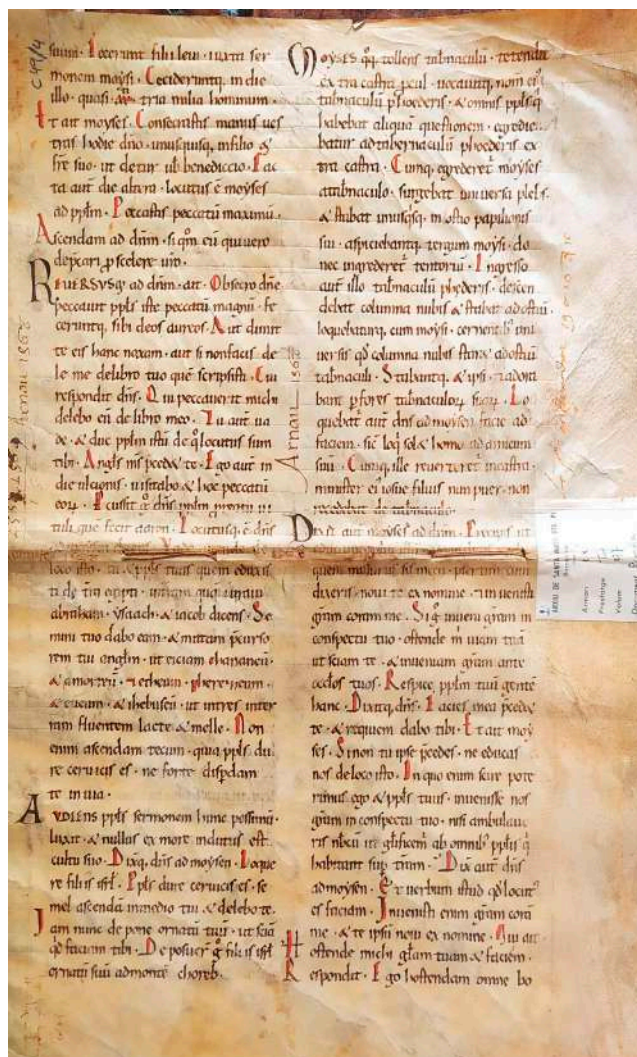 suum. Fecerunt filii levi. iuxta ser
monem moysi. Cecideruntq; in die
illo. quasi tria milia hominum.
Et ait moyses. Consecrastis manus ves
tras hodie dño. unusquisq; in filio &
fr̃e suo. ut detur uob benediccio. Fac
ta aut̃ die altera. locutus ẽ moyses
ad pplm̃. Peccastis peccatũ maximũ.
Ascendam ad dñm. si q̃m eũ quivero
dep̃cari p scelere vr̃o.
REUERSUSq; ad dñm. ait. Obsecro dñe
peccavit ppls̃ iste peccatũ magnũ. fe
ceruntq; sibi deos aureos. Aut dimit
te eis hanc noxam. aut si non facis de
le me de libro tuo quẽ scripsisti. Cui
respondit dñs. Qui peccaverit michi
delebo eũ de libro meo. Tu aut̃ va
de. & duc pplm̃ istũ de q̃ locutus sum
tibi. Angls̃ ms̃ p̃cedet te. Ego aut̃ in
die ulcionis. visitabo & hoc peccatũ
eoꝝ. Pcussit g̃ dñs pplm̃ pro reatu vi
tuli que fecit aaron. Locutusq; ẽ dñs
loco isto. tu & ppls̃ tuus quem eduxis
ti de tr̃a egipti. intram quã iuravi
abraham. ysaach. & iacob dicens. Se
mini tuo dabo eam. & mittam p̃curso
rem tui anglm̃. ut eiciam chananeũ
& amorreũ. & etheum. pherezeum.
& eveum. & ihebuseũ. ut intres inter
ram fluentem lacte & melle. Non
enim ascendam tecum. quia ppls̃ du
re cervicis es. ne forte dispdam
te in via.
AUDIENS ppls̃ sermonem hunc possimũ.
luxit. & nullus ex more indutus est
cultu suo. Dixq; dñs ad moysen. Loque
re filiis isrl̃. Ppls̃ dure cervicis es. se
mel ascendã in medio tui & delebo te.
Iam nunc depone ornatũ tuũ. ut sciã
qd̃ faciam tibi. Deposuer̃ g̃ filii isrl̃
ornatũ suũ admontẽ choreb.
MOYSES q̃q; tollens tabnaculũ. tetendit
extra castra pcul. vocavitq; nom ei9
tabnaculũ phoederis. & omnis ppls̃ q̃
habebat aliquã questionem. egredie
batur ad tabernaculũ phoederis ex
tra castra. Cumq; egrederet̃ moyses
atabnaculo. surgebat universa plebs.
& stabat unusq̃sq; in ostio papilionis
sui. aspiciebantq; tergum moysi. do
nec ingrederet̃ tentoriũ. Ingresso
aut̃ illo tabnaculũ phederis. descen
debat columna nubis & stabat adostiũ.
loquebaturq; cum moysi. cernentib; uni
versis q̃ columna nubis staret adostiũ
tabnaculi. Stabantq; & ipsi. & adora
bant p fores tabnaculoꝝ suoꝝ. Lo
quebat̃ aut̃ dñs ad moysen facie ad
faciem. sic̃ loq̃ solet homo ad amicum
suũ. Cumq; ille reverteret̃ in castra.
minister ei9 iosue filius nun puer. non
recedebat de tabnaculo.
Dixit aut̃ moyses ad dñm. Precipis ut
quem missurus sis mecũ. p̃sertim cum
dixeris. novi te ex nomine. & invenisti
gr̃am coram me. Si g̃ inveni gr̃am in
conspectu tuo. ostende m̃ viam tuã
ut sciam te. & inveniam gr̃am ante
occlos tuos. Respice pplm̃ tuũ gentẽ
hanc. Dixitq; dñs. Facies mea p̃cedet
te. & requiem dabo tibi. Et ait moy
ses. Si non tu ipse p̃cedes. ne educas
nos de loco isto. In quo enim scire pote
rimus ego & ppls̃ tuus. invenisse nos
gr̃am in conspectu tuo. nisi ambulave
ris nb̃cũ ut gl̃ificem̃ ab omnib; pplis̃ q̃
habitant sup tr̃am. Dix aut̃ dñs
ad moysen. Et verbum istud qd̃ locut9
es faciam. Invenisti enim gr̃am corã
me. & te ipsũ novi ex nomine. Qui ait
ostende michi gl̃am tuam & faciem.
Respondit. Ego hostendam omne bo
C 49/4
Arnau 1568
ARXIU DE SANTA MARIA DEL PI
Armari
Prestatge
Volum